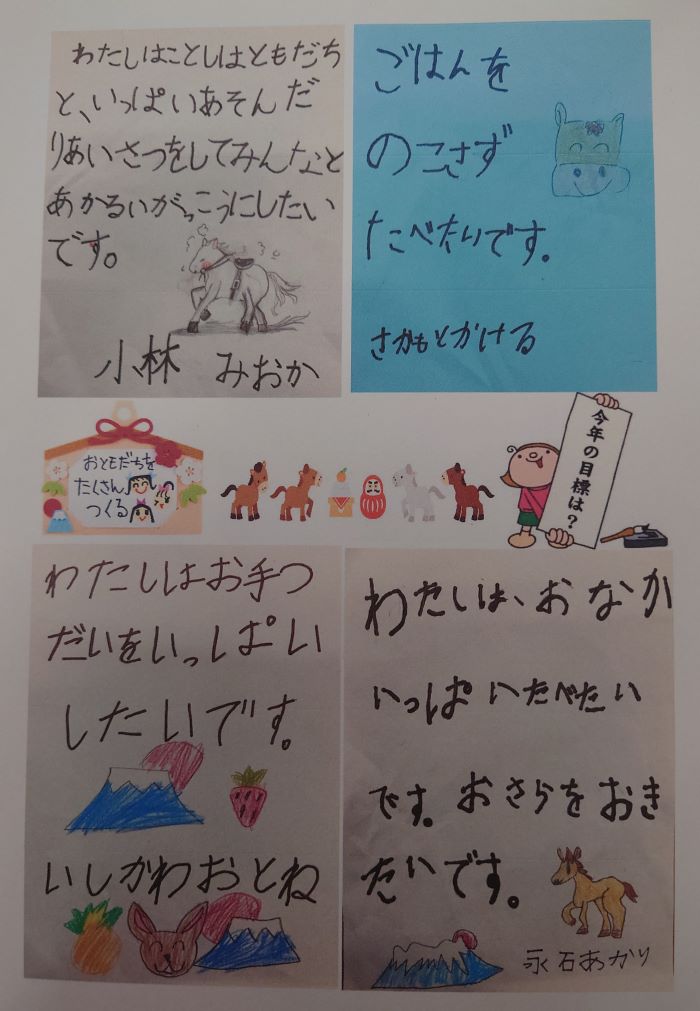 わたしはことしはともだち
と、いっぱいあそんだ
りあいさつをしてみんなと
あかるいがっこうにしたい
です。
小林 みおか
ごはんを
のこさず
たべたいです。
さかもとかける
おともだちを
たくさん
つくる
今年の目標は?
わたしはお手つ
だいをいっぱい
したいです。
いしかわおとね
わたしは、おなか
いっぱいたべたい
です。おさらをおき
たいです。
永石あかり